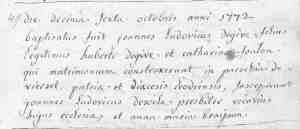 die decima sexta octobris anni 1772
baptisatus fuit joannes Ludovicus degive filius
legitimus huberti degive et catharina
qui matrimonium contraxerunt in parochia de
patria et diœcesis leodiensis, susceperunt
joannes Ludovicus presbiter vicarius
hujus ecclesiæ et anna maria